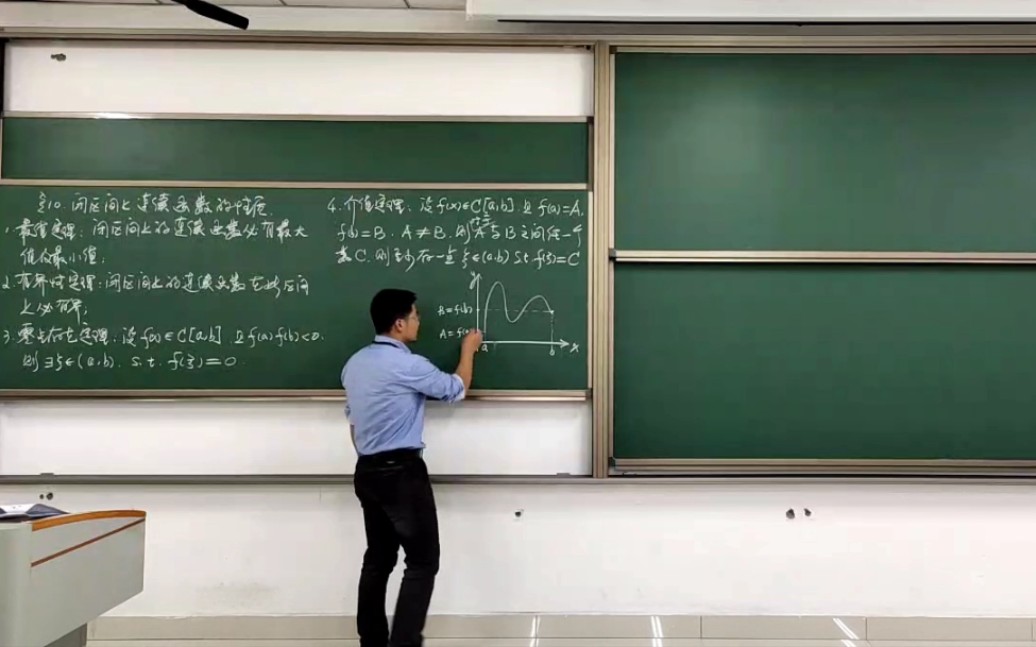 §10. 闭区间上连续函数的性质.
1. 最值定理: 闭区间上的连续函数必有最大
值和最小值;
2. 有界性定理: 闭区间上的连续函数在此区间
上必有界;
3. 零点存在定理: 设 f(x)∈C[a,b] 且 f(a)·f(b)<0.
则 ∃ξ∈(a,b). s.t. f(ξ)=0.
4. 介值定理: 设 f(x)∈C[a,b] 且 f(a)=A,
f(b)=B. A≠B. 则 A与B之间任一个
数C, 则至少存在一点 ξ∈(a,b) s.t. f(ξ)=C
y
B=f(b)
A=f(a)
a
b
x